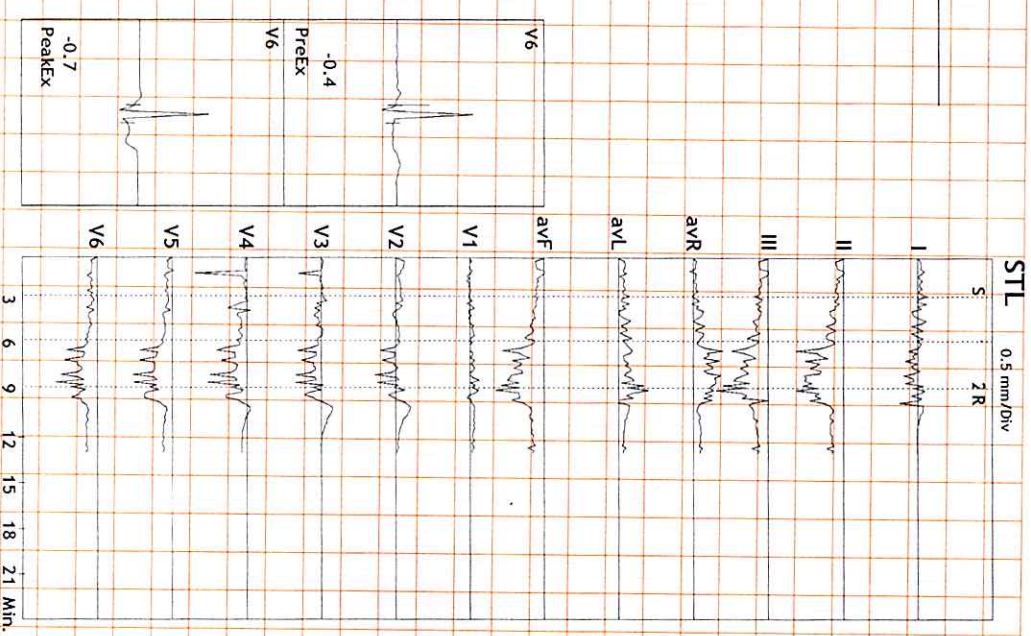 STL 0.5 mm/Div
S 2 R
I
II
III
avR
avL
avF
V1
V2
V3
V4
V5
V6
3 6 9 12 15 18 21 Min.
V6
-0.4
PreEx
V6
-0.7
PeakEx